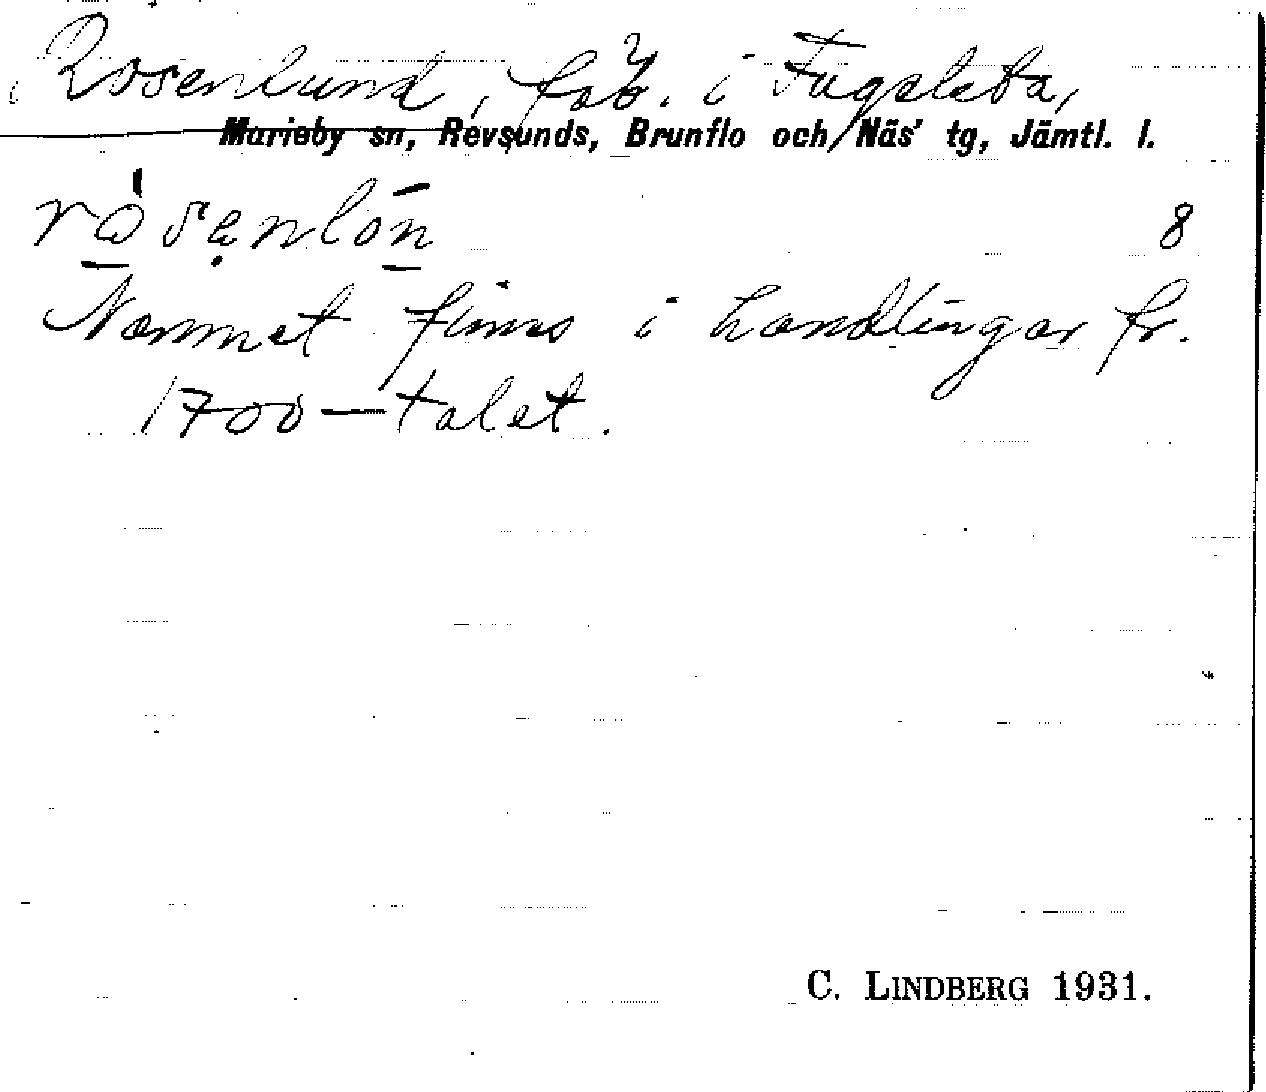 Rosenlund, fäb. i Fugelsta,
Marieby sn, Revsunds, Brunflo och Näs' tg, Jämtl. l.
8
Namnet finns i handlingar fr.
1700–talet.
C. LINDBERG 1931.